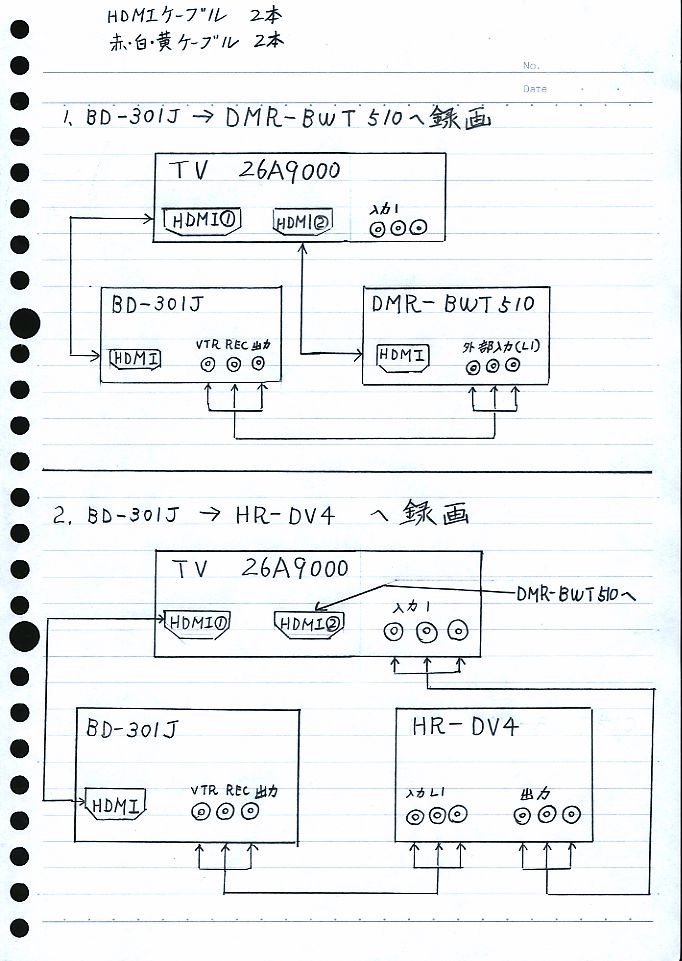 HDMIケーブル 2本
赤・白・黄ケーブル 2本
No.
Date
1、BD-301J → DMR-BWT510へ録画
TV 26A9000
HDMI① HDMI② 入力1
BD-301J
DMR-BWT510
HDMI VTR REC 出力
HDMI 外部入力(L1)
2、BD-301J → HR-DV4 へ録画
TV 26A9000
DMR-BWT510へ
HDMI① HDMI② 入力1
BD-301J
HR-DV4
HDMI VTR REC 出力
入力L1 出力